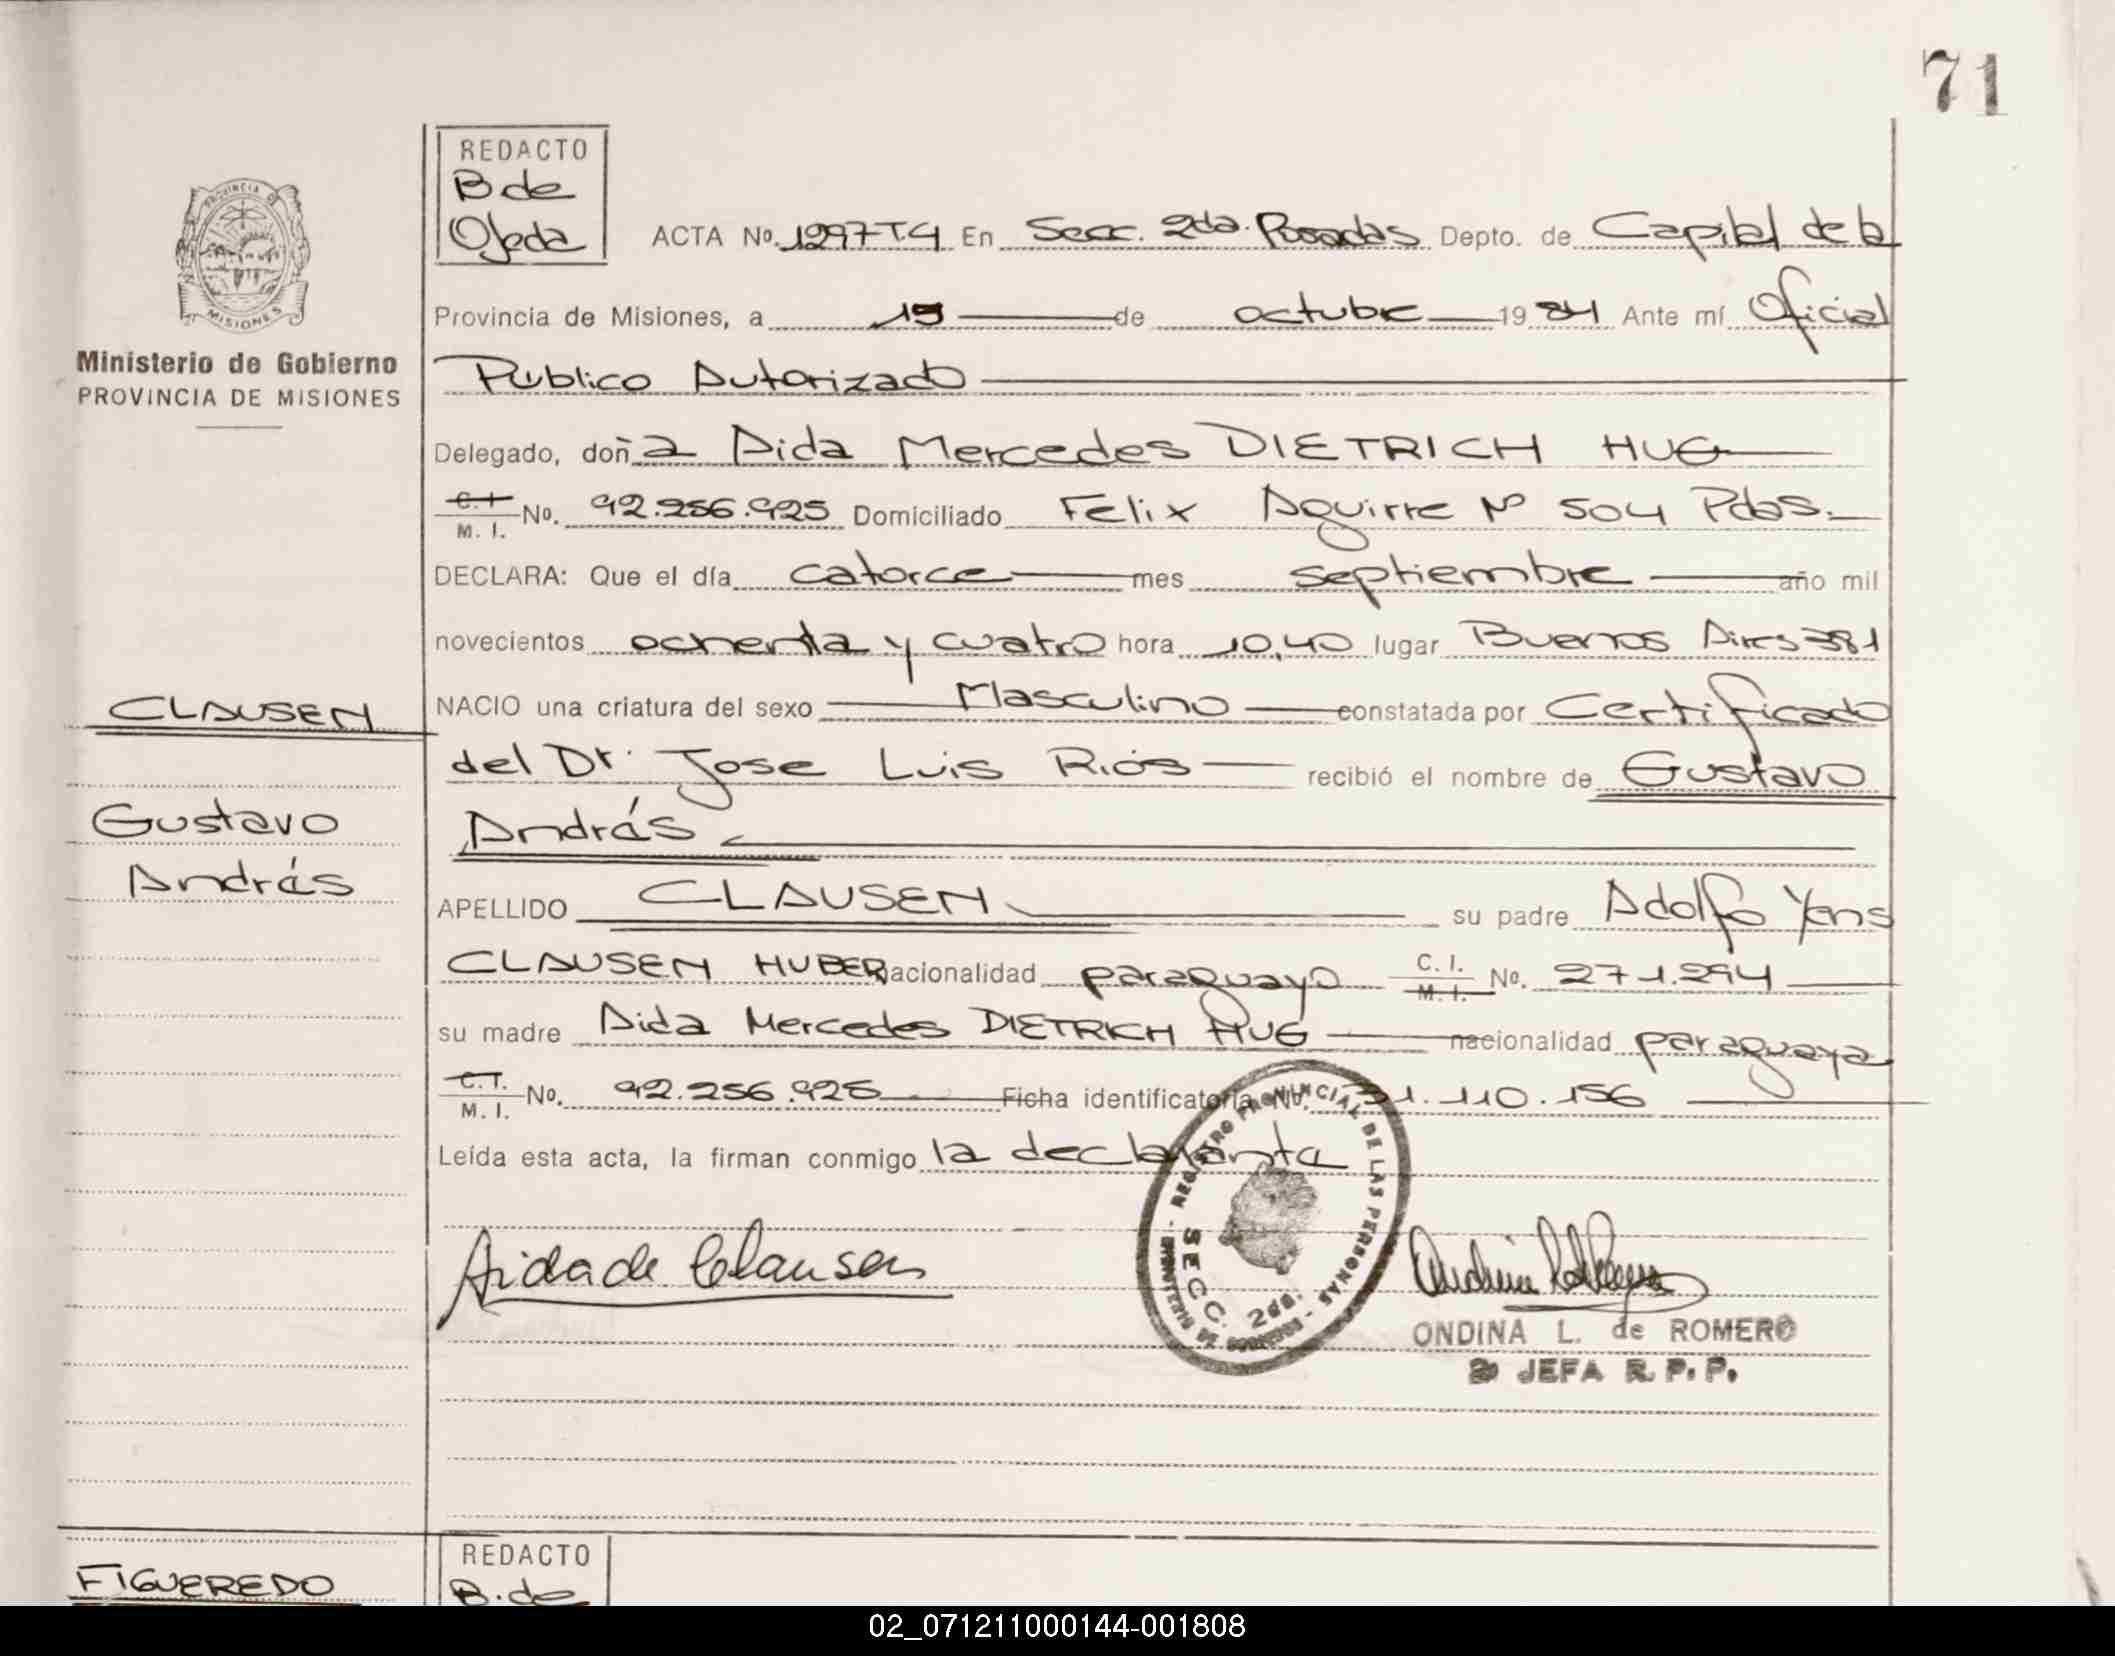 71
REDACTO
B de
Ojeda
ACTA Nº. 1297T4 En Secc. 2da. Posadas Depto. de Capital de la
PROVINCIA DE
MISIONES
Provincia de Misiones, a 19 de octubre 1984 Ante mí Oficial
Ministerio de Gobierno
PROVINCIA DE MISIONES
Público Autorizado
Delegado, doña Aida Mercedes DIETRICH HUG
C.I. M. I. No. 92.256.925 Domiciliado Felix Aguirre Nº 504 Pdas.
DECLARA: Que el día catorce mes septiembre año mil
novecientos ochenta y cuatro hora 10,40 lugar Buenos Aires 381
CLAUSEN
NACIO una criatura del sexo Masculino constatada por Certificado
del Dr. Jose Luis Riós recibió el nombre de Gustavo
Gustavo
András
András
APELLIDO CLAUSEN su padre Adolfo Yens
CLAUSEN HUBER nacionalidad paraguayo C. I. M. I. No. 271.294
su madre Aida Mercedes DIETRICH HUG nacionalidad paraguaya
C.I. M. I. No. 92.256.925 Ficha identificatoria No. 31.110.156
Leída esta acta, la firman conmigo la declaranta
REGISTRO PROVINCIAL DE LAS PERSONAS
SECC. 2da.
Aida de Clausen
ONDINA L. de ROMERO
JEFA R. P. P.
REDACTO
FIGUEREDO
B. de
02_071211000144-001808